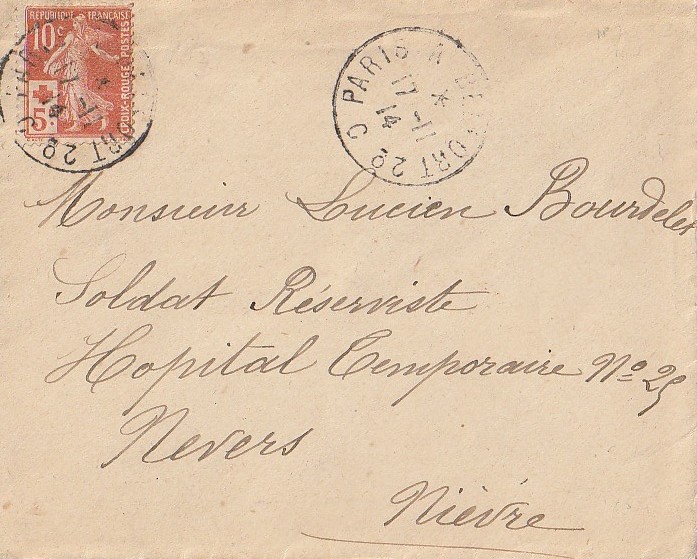 RÉPUBLIQUE FRANÇAISE
10c
POSTES
CROIX-ROUGE
5c
PARIS A BELFORT 2º C
17 -11
14
Monsieur Lucien Bourdelet
Soldat Réserviste
Hopital Temporaire Nº 25
Nevers
Nièvre